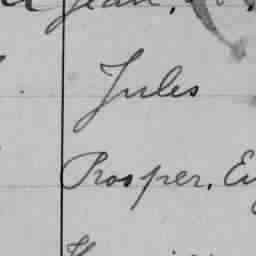 Jean,
Jules
Prosper, Eu